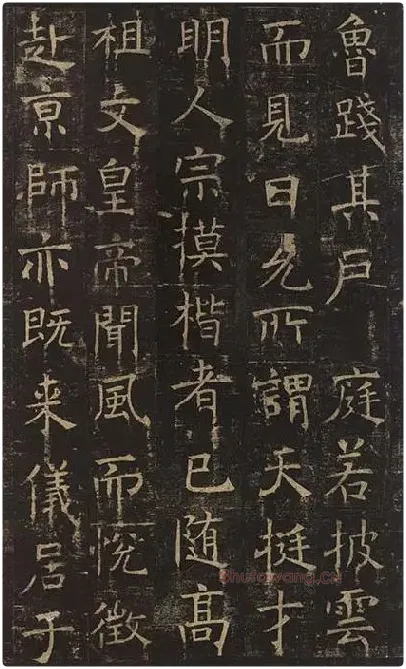 魯踐其戶庭若披雲
而見日允所謂天挺才
明人宗摸楷者已随高
祖文皇帝聞風而悅徵
赴亰師亦既来儀居于
shufawang.cn